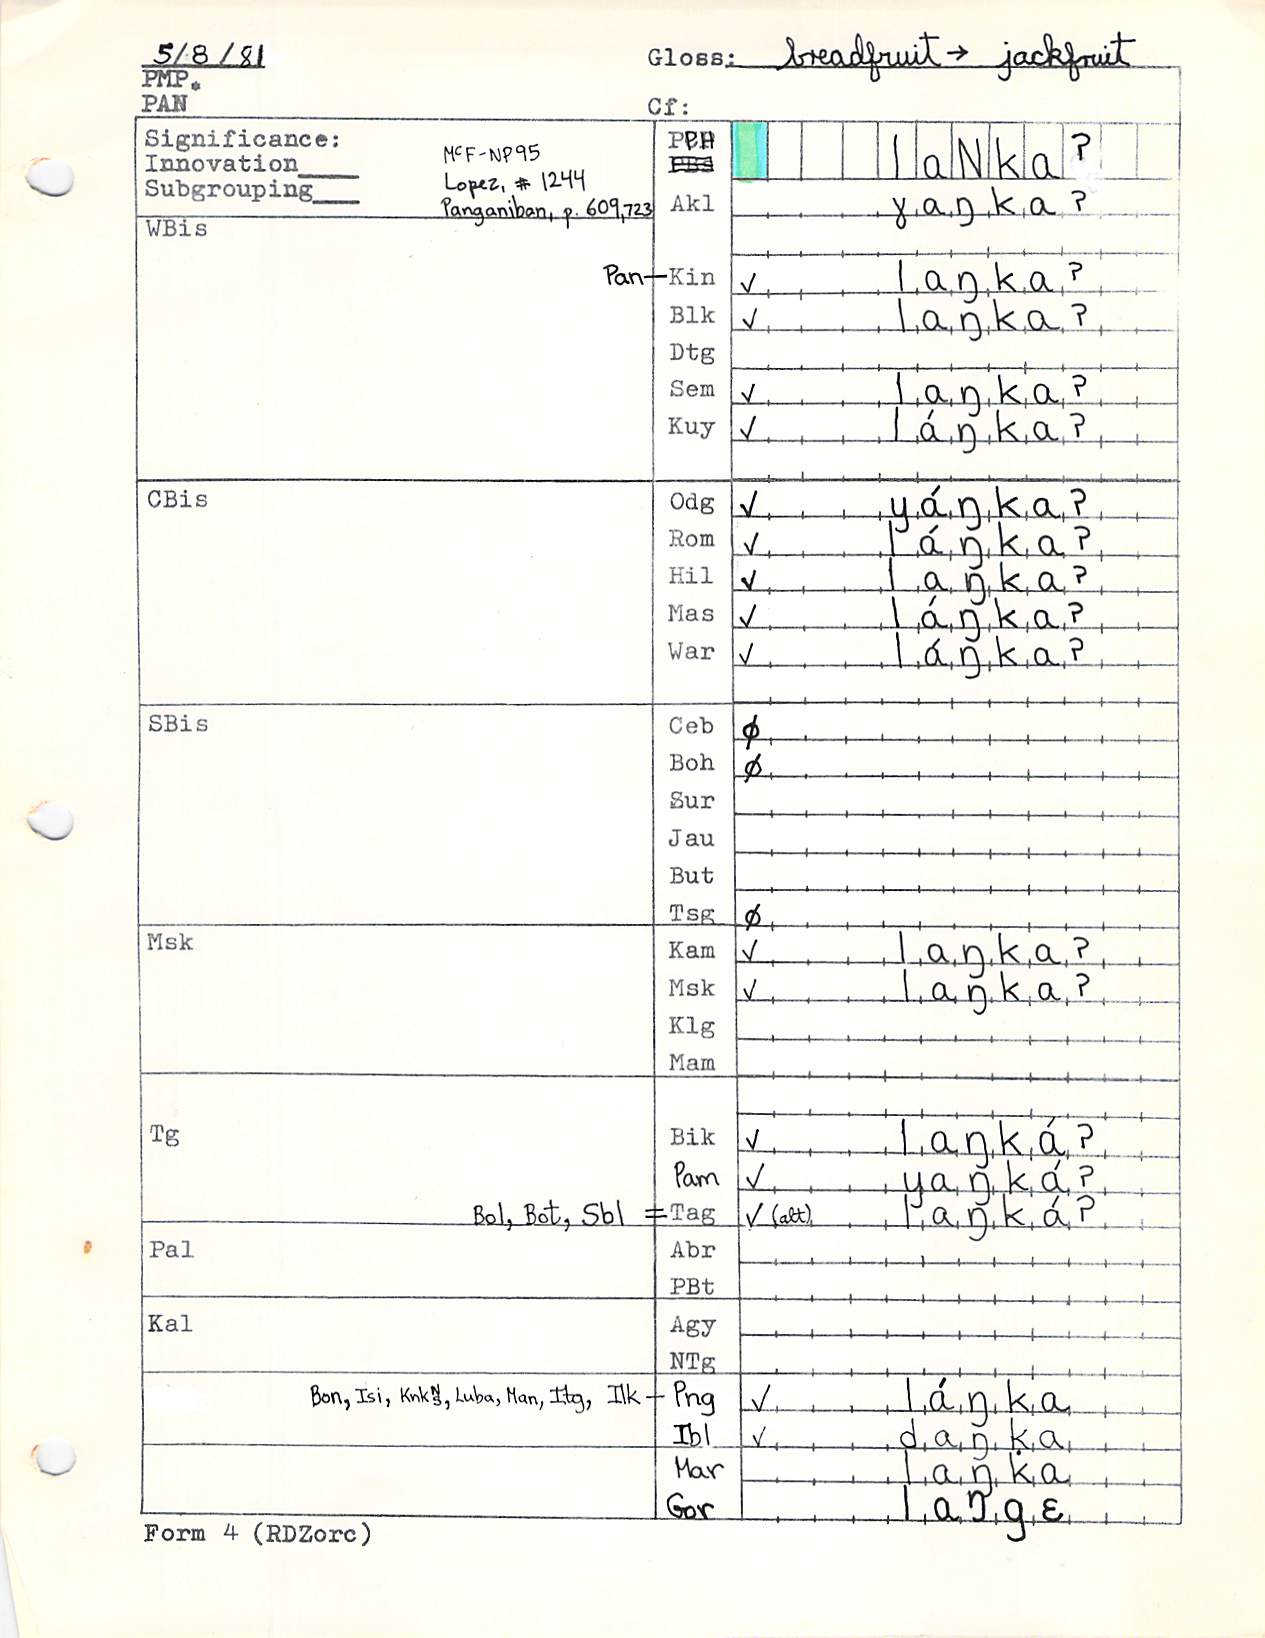 5/8/81 Gloss: breadfruit → jackfruit
PMP.
PAN Cf:
Significance: PPH laNkaʔ
Innovation____ McF-NP95
Subgrouping____ Lopez, # 1244
Panganiban, p. 609,723 Akl ɣaŋkaʔ
WBis
Pan — Kin ✓ laŋkaʔ
Blk ✓ laŋkaʔ
Dtg
Sem ✓ laŋkaʔ
Kuy ✓ láŋkaʔ
CBis Odg ✓ yáŋkaʔ
Rom ✓ láŋkaʔ
Hil ✓ laŋkaʔ
Mas ✓ láŋkaʔ
War ✓ láŋkaʔ
SBis Ceb ∅
Boh ∅
Sur
Jau
But
Tsg ∅
Msk Kam ✓ laŋkaʔ
Msk ✓ laŋkaʔ
Klg
Mam
Tg Bik ✓ laŋkáʔ
Pam ✓ yaŋkáʔ
Bol, Bot, Sbl = Tag ✓ (alt) laŋkáʔ
Pal Abr
PBt
Kal Agy
NTg
Bon, Isi, KnkN,S, Luba, Man, Itg, Ilk — Png ✓ láŋka
Ibl ✓ daŋka
Mar laŋka
Gor laŋgɛ
Form 4 (RDZorc)